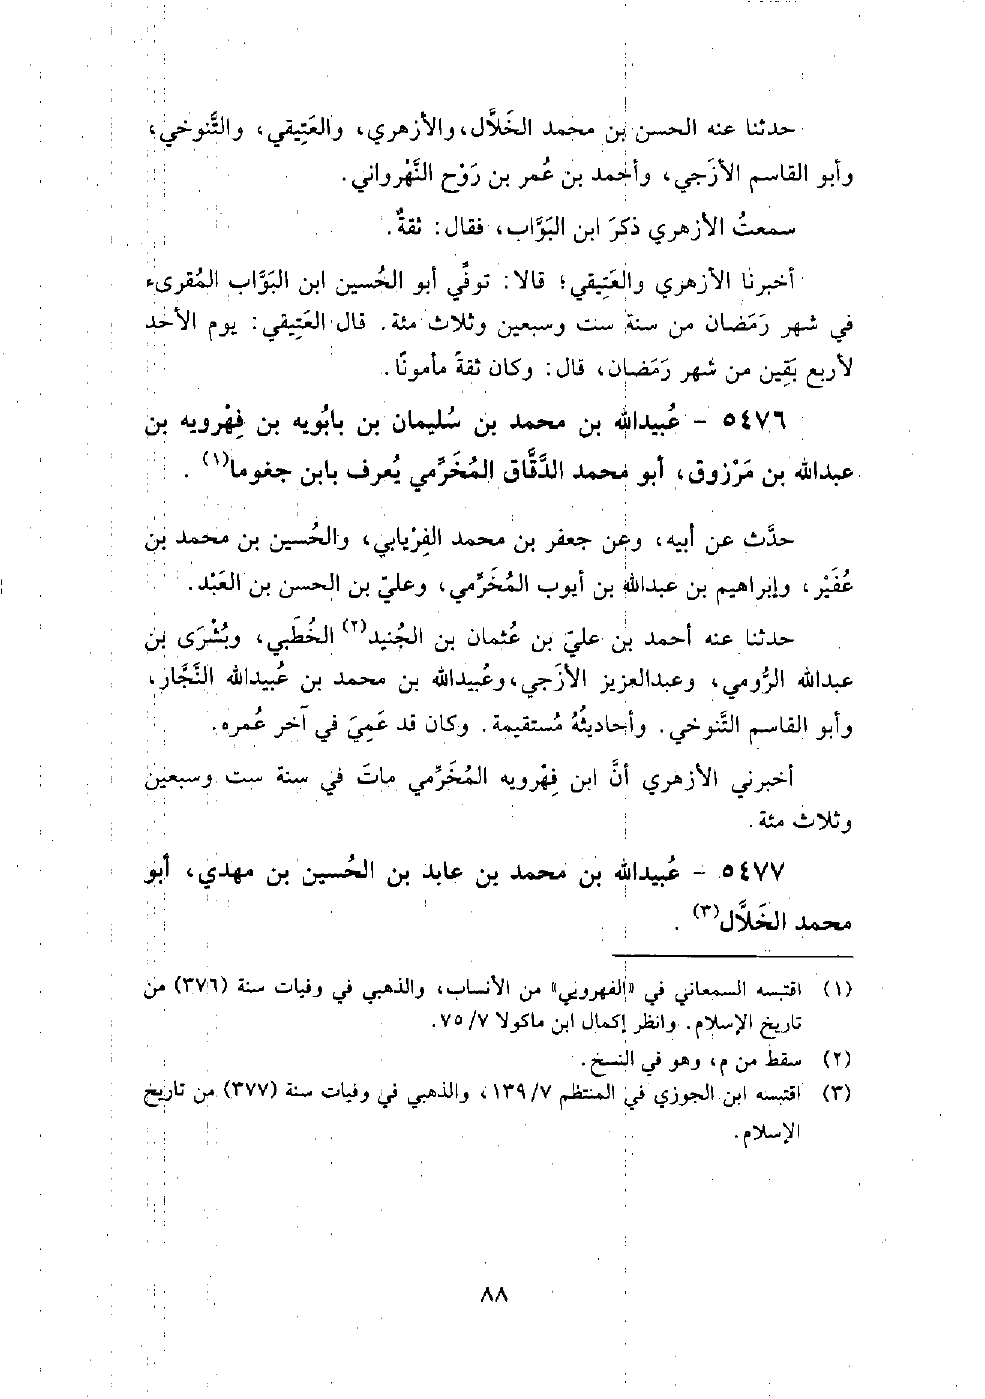 حدثنا عنه الحسن بن محمد الخَلاَّل، والأزهري، والعَتِيقي، والتَّنوخي،
وأبو القاسم الأزَجي، وأحمد بن عُمر بن رَوْح النَّهْرواني.
سمعتُ الأزهري ذكرَ ابن البَوَّاب، فقال: ثقةٌ.
أخبرنا الأزهري والعَتِيقي؛ قالا: توفِّي أبو الحُسين ابن البَوَّاب المُقرىء
في شهر رَمَضان من سنة ست وسبعين وثلاث مئة. قال العَتِيقي: يوم الأحد
لأربع بَقِين من شهر رَمَضان، قال: وكان ثقةً مأمونًا.
٥٤٧٦ - عُبيدالله بن محمد بن سُليمان بن بابُويه بن فِهْرويه بن
عبدالله بن مَرْزوق، أبو محمد الدَّقَّاق المُخَرِّمي يُعرف بابن جغوما(١).
حدَّث عن أبيه، وعن جعفر بن محمد الفِرْيابي، والحُسين بن محمد بن
عُفَيْر، وإبراهيم بن عبدالله بن أيوب المُخَرِّمي، وعليّ بن الحسن بن العَبْد.
حدثنا عنه أحمد بن عليّ بن عُثمان بن الجُنيد(٢) الخُطَبي، وبُشْرَى بن
عبدالله الرُّومي، وعبدالعزيز الأزَجي، وعُبيدالله بن محمد بن عُبيدالله النَّجَّار،
وأبو القاسم التَّنوخي. وأحاديثُهُ مُستقيمة. وكان قد عَمِيَ في آخر عُمره.
أخبرني الأزهري أنَّ ابن فِهْرويه المُخَرِّمي ماتَ في سنة ست وسبعين
وثلاث مئة.
٥٤٧٧ - عُبيدالله بن محمد بن عابد بن الحُسين بن مهدي، أبو
محمد الخَلاَّل(٣).
(١) اقتبسه السمعاني في «الفهرويي» من الأنساب، والذهبي في وفيات سنة (٣٧٦) من
تاريخ الإسلام. وانظر إكمال ابن ماكولا ٧/ ٧٥.
(٢) سقط من م، وهو في النسخ.
(٣) اقتبسه ابن الجوزي في المنتظم ٧/ ١٣٩، والذهبي في وفيات سنة (٣٧٧) من تاريخ
الإسلام.
٨٨